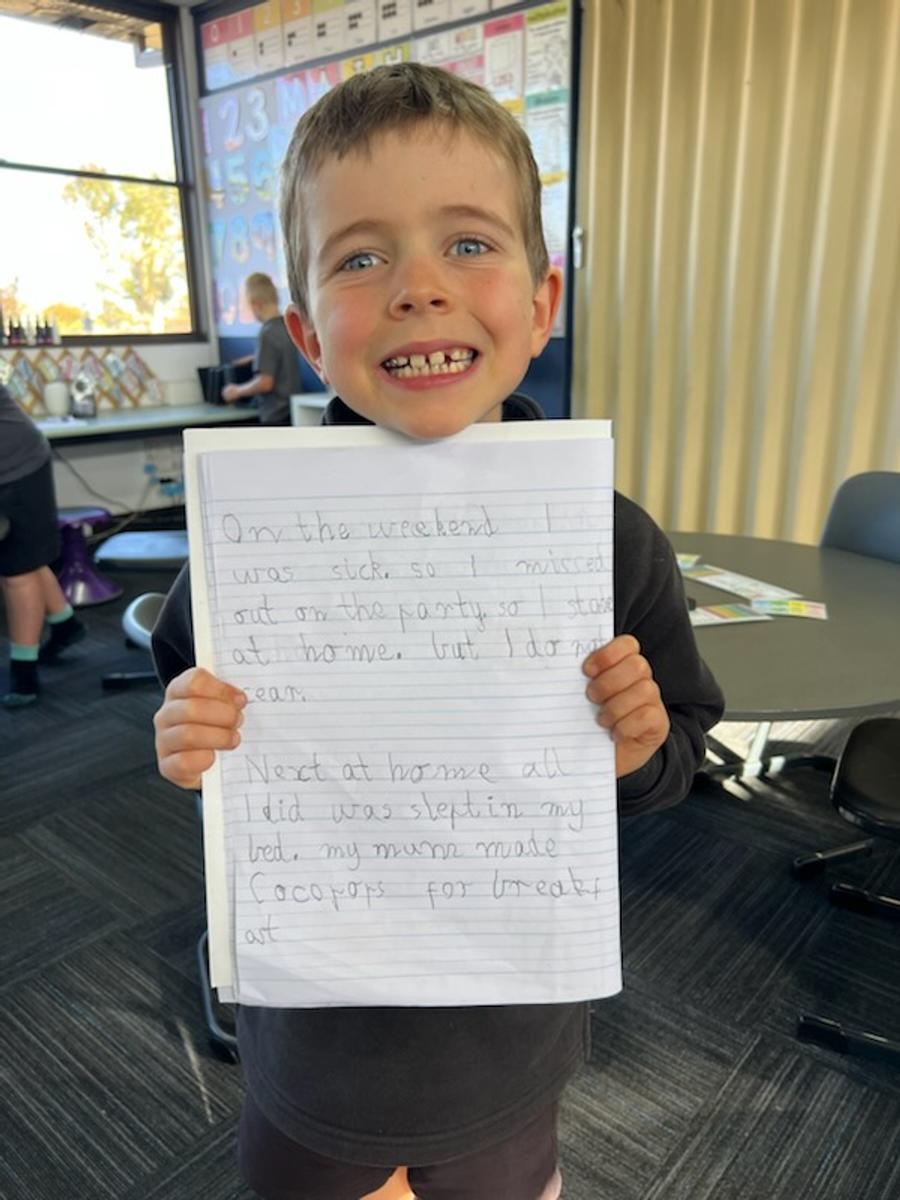 On the weekend I
was sick. so I missed
out on the party. so I
at home. but I do not
Next at home all
I did was slept in my
bed. my mum made
Cocopops for breakf
ast
0 1 2 3
123
456
789